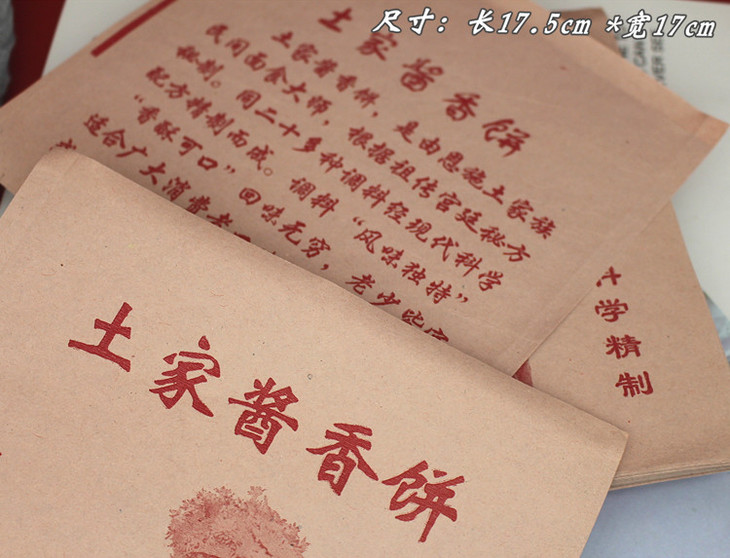 尺寸：长17.5cm *宽17cm
土家酱香饼
土家酱香饼，是由恩施土家族
民间面食大师，根据祖传宫廷秘方
秘制。同二十多种调料经现代科学
配方精制而成。调料“风味独特”
“香酥可口”回味无穷，老少皆宜
适合广大消费者
学精制
土家酱香饼